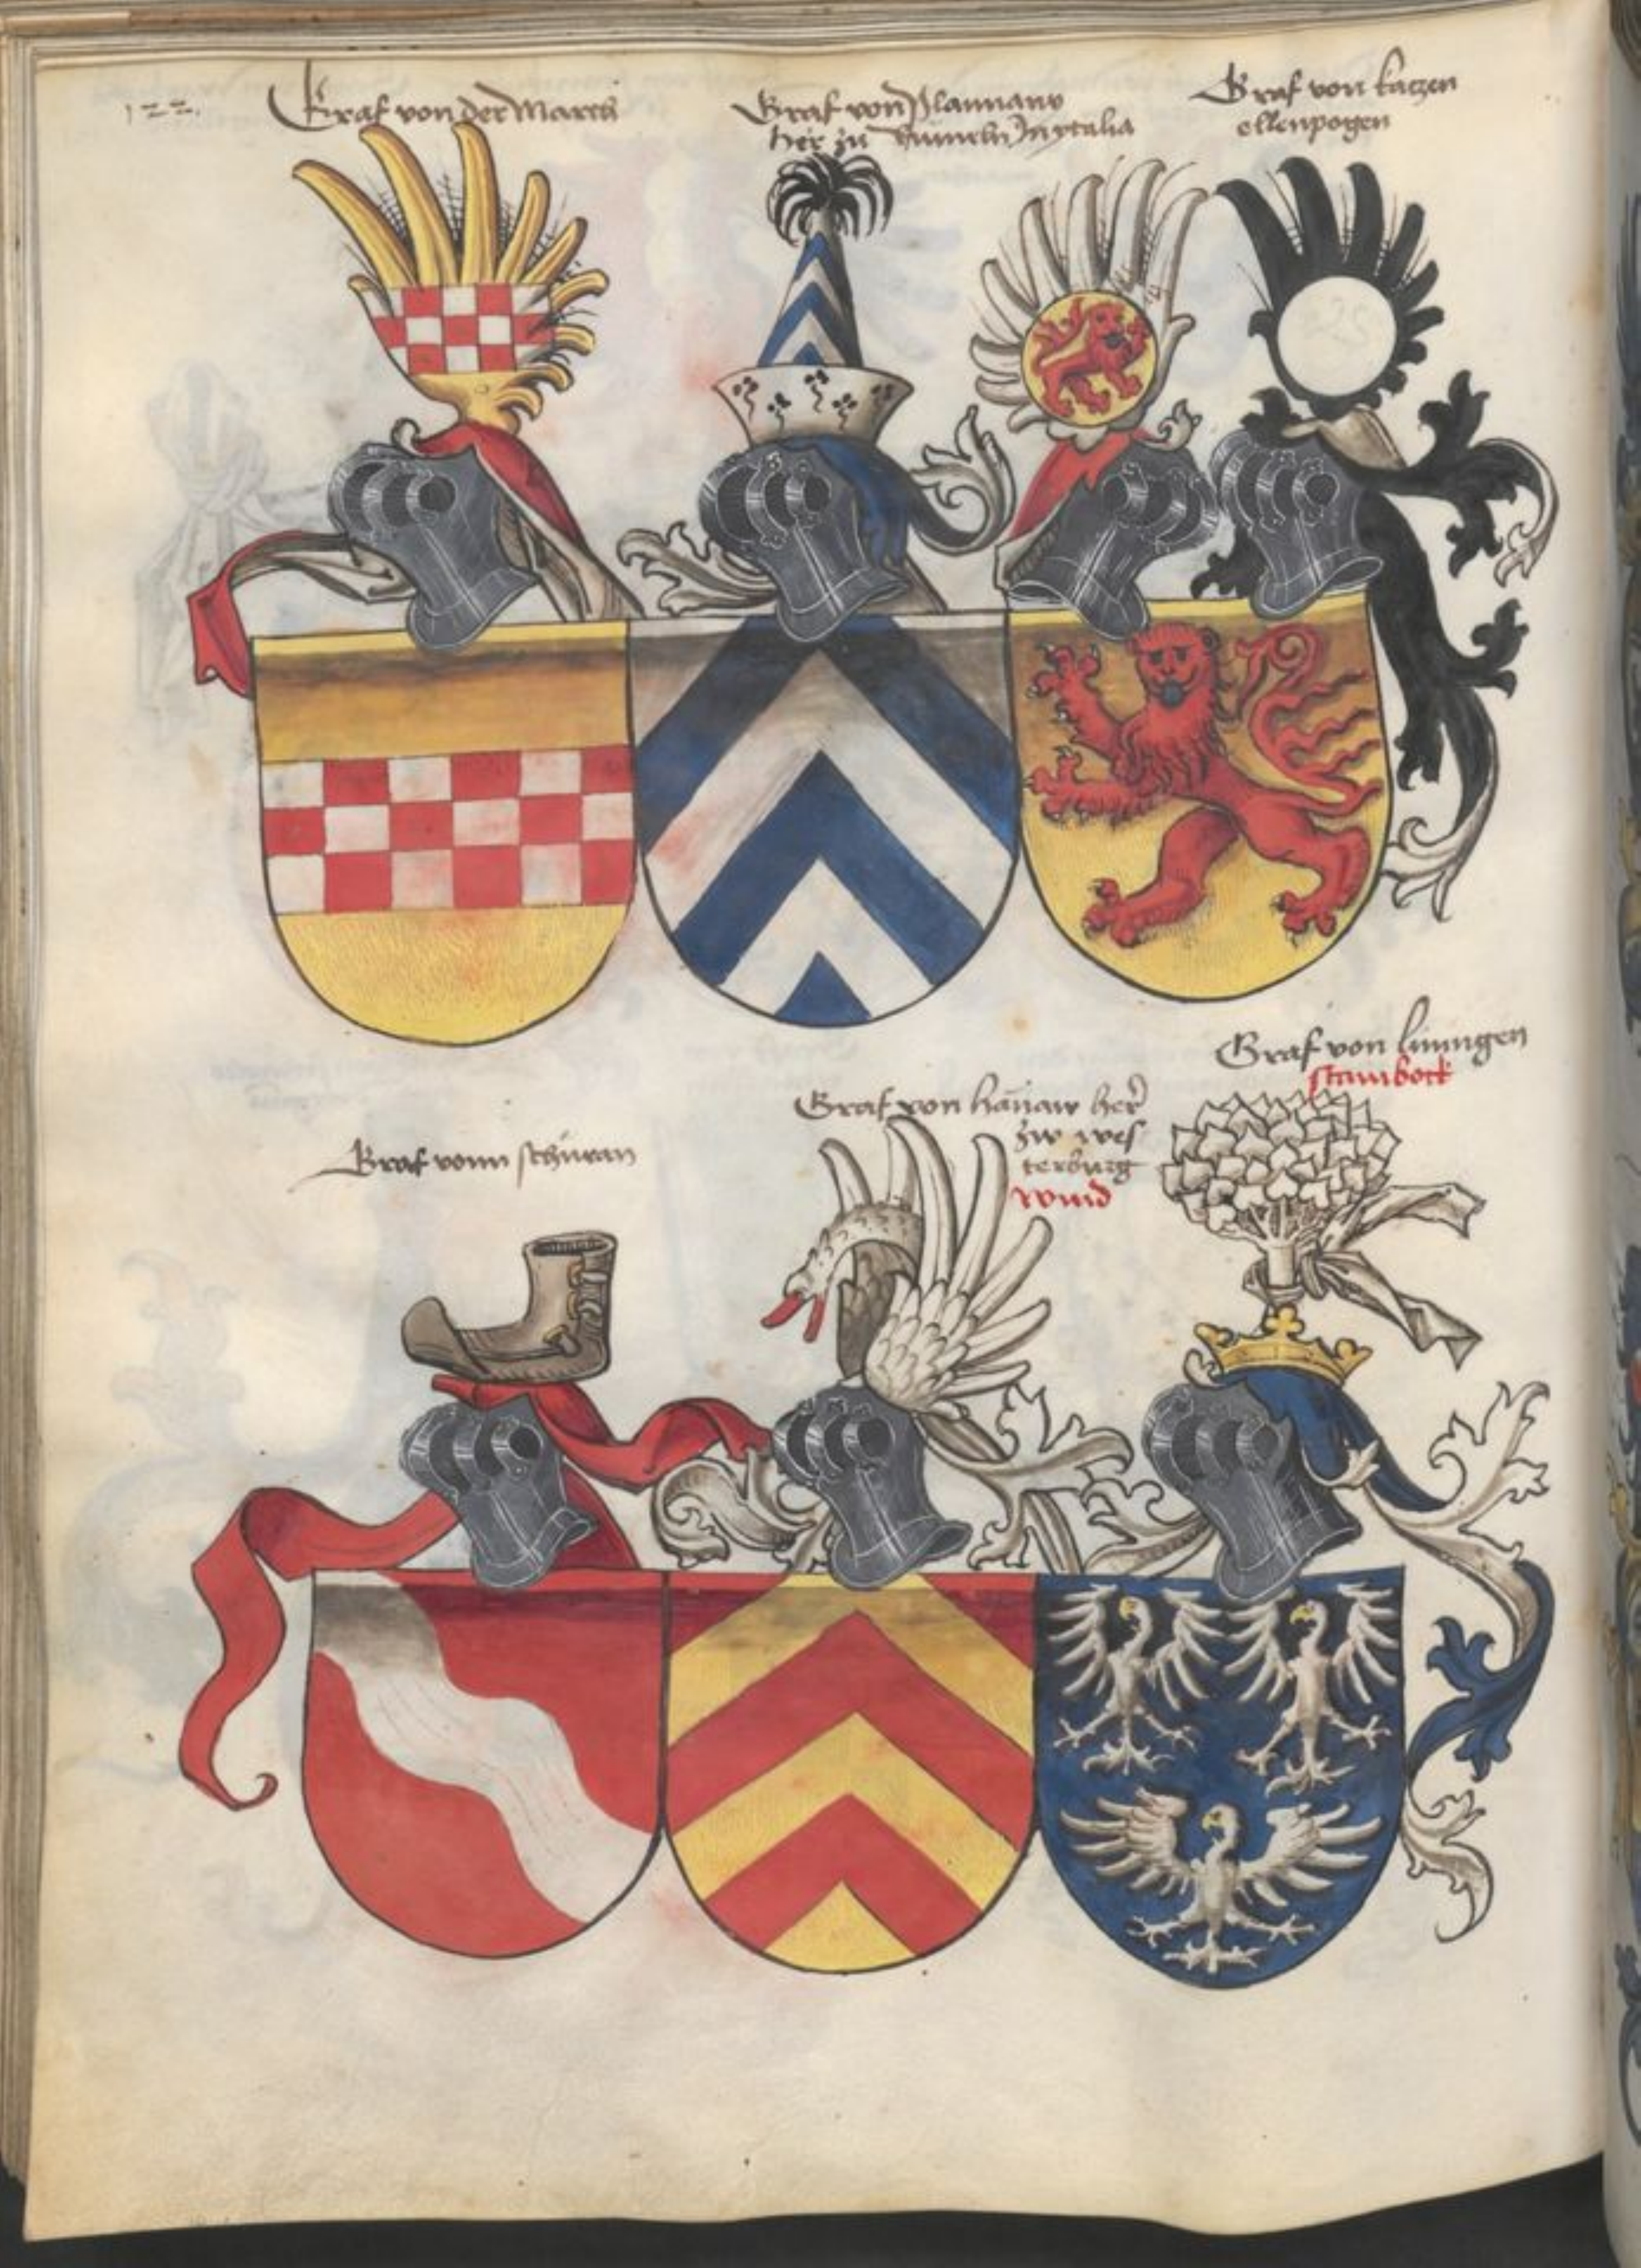 122.
Graf von der Marck
Graf von
her zu In ytalia
Graf von katzen
ellenpogen
Graf vonn schuran
Graf von hanaw her
zw wes
terburg
wind
Graf von liningen
stainbock